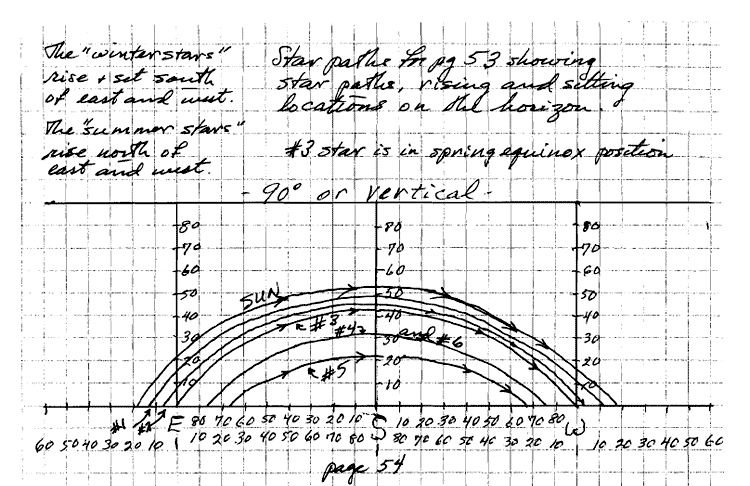 The "winter stars"
rise + set south
of east and west.
The "summer stars"
rise north of
east and west.
Star paths for pg 53 showing
star paths, rising and setting
locations on the horizon.
#3 star is in spring equinox position
- 90° or vertical -
80 80 80
70 70 70
60 60 60
50 50 50
40 40 40
30 30 30
20 20 20
10 10 10
SUN
#3
#4 and #6
#5
#1 #2 E 80 70 60 50 40 30 20 10 S 10 20 30 40 50 60 70 80 W
60 50 40 30 20 10 10 20 30 40 50 60 70 80 80 70 60 50 40 30 20 10 10 20 30 40 50 60
page 54